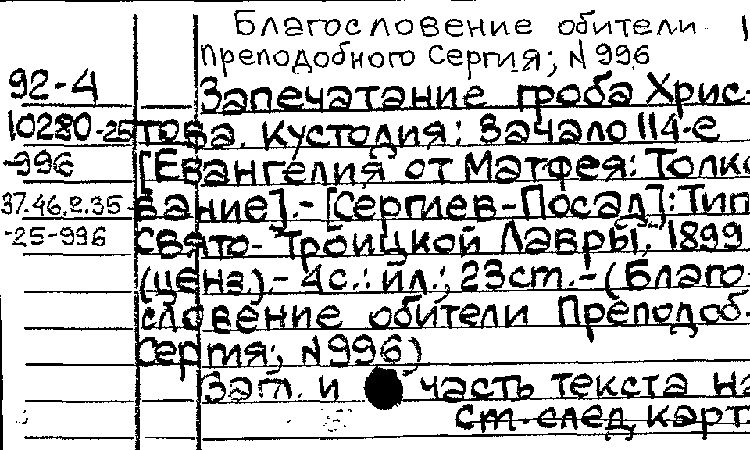 Благословение обители
Преподобного Сергия; N 996
92-4 Запечатание гроба Хрис-
10280-25 това. Кустодия: Зачало 114-е
-996 [Евангелия от Матфея: Толко
37.46.2.35- вание].- [Сергиев-Посад]: Тип
-25-996 Свято-Троицкой Лавры, 1899
(ценз.).- 4с.: ил.; 23см.-(Благо-
словение обители Преподоб.
Сергия; N996)
Заг. и часть текста на
см. след. карт.